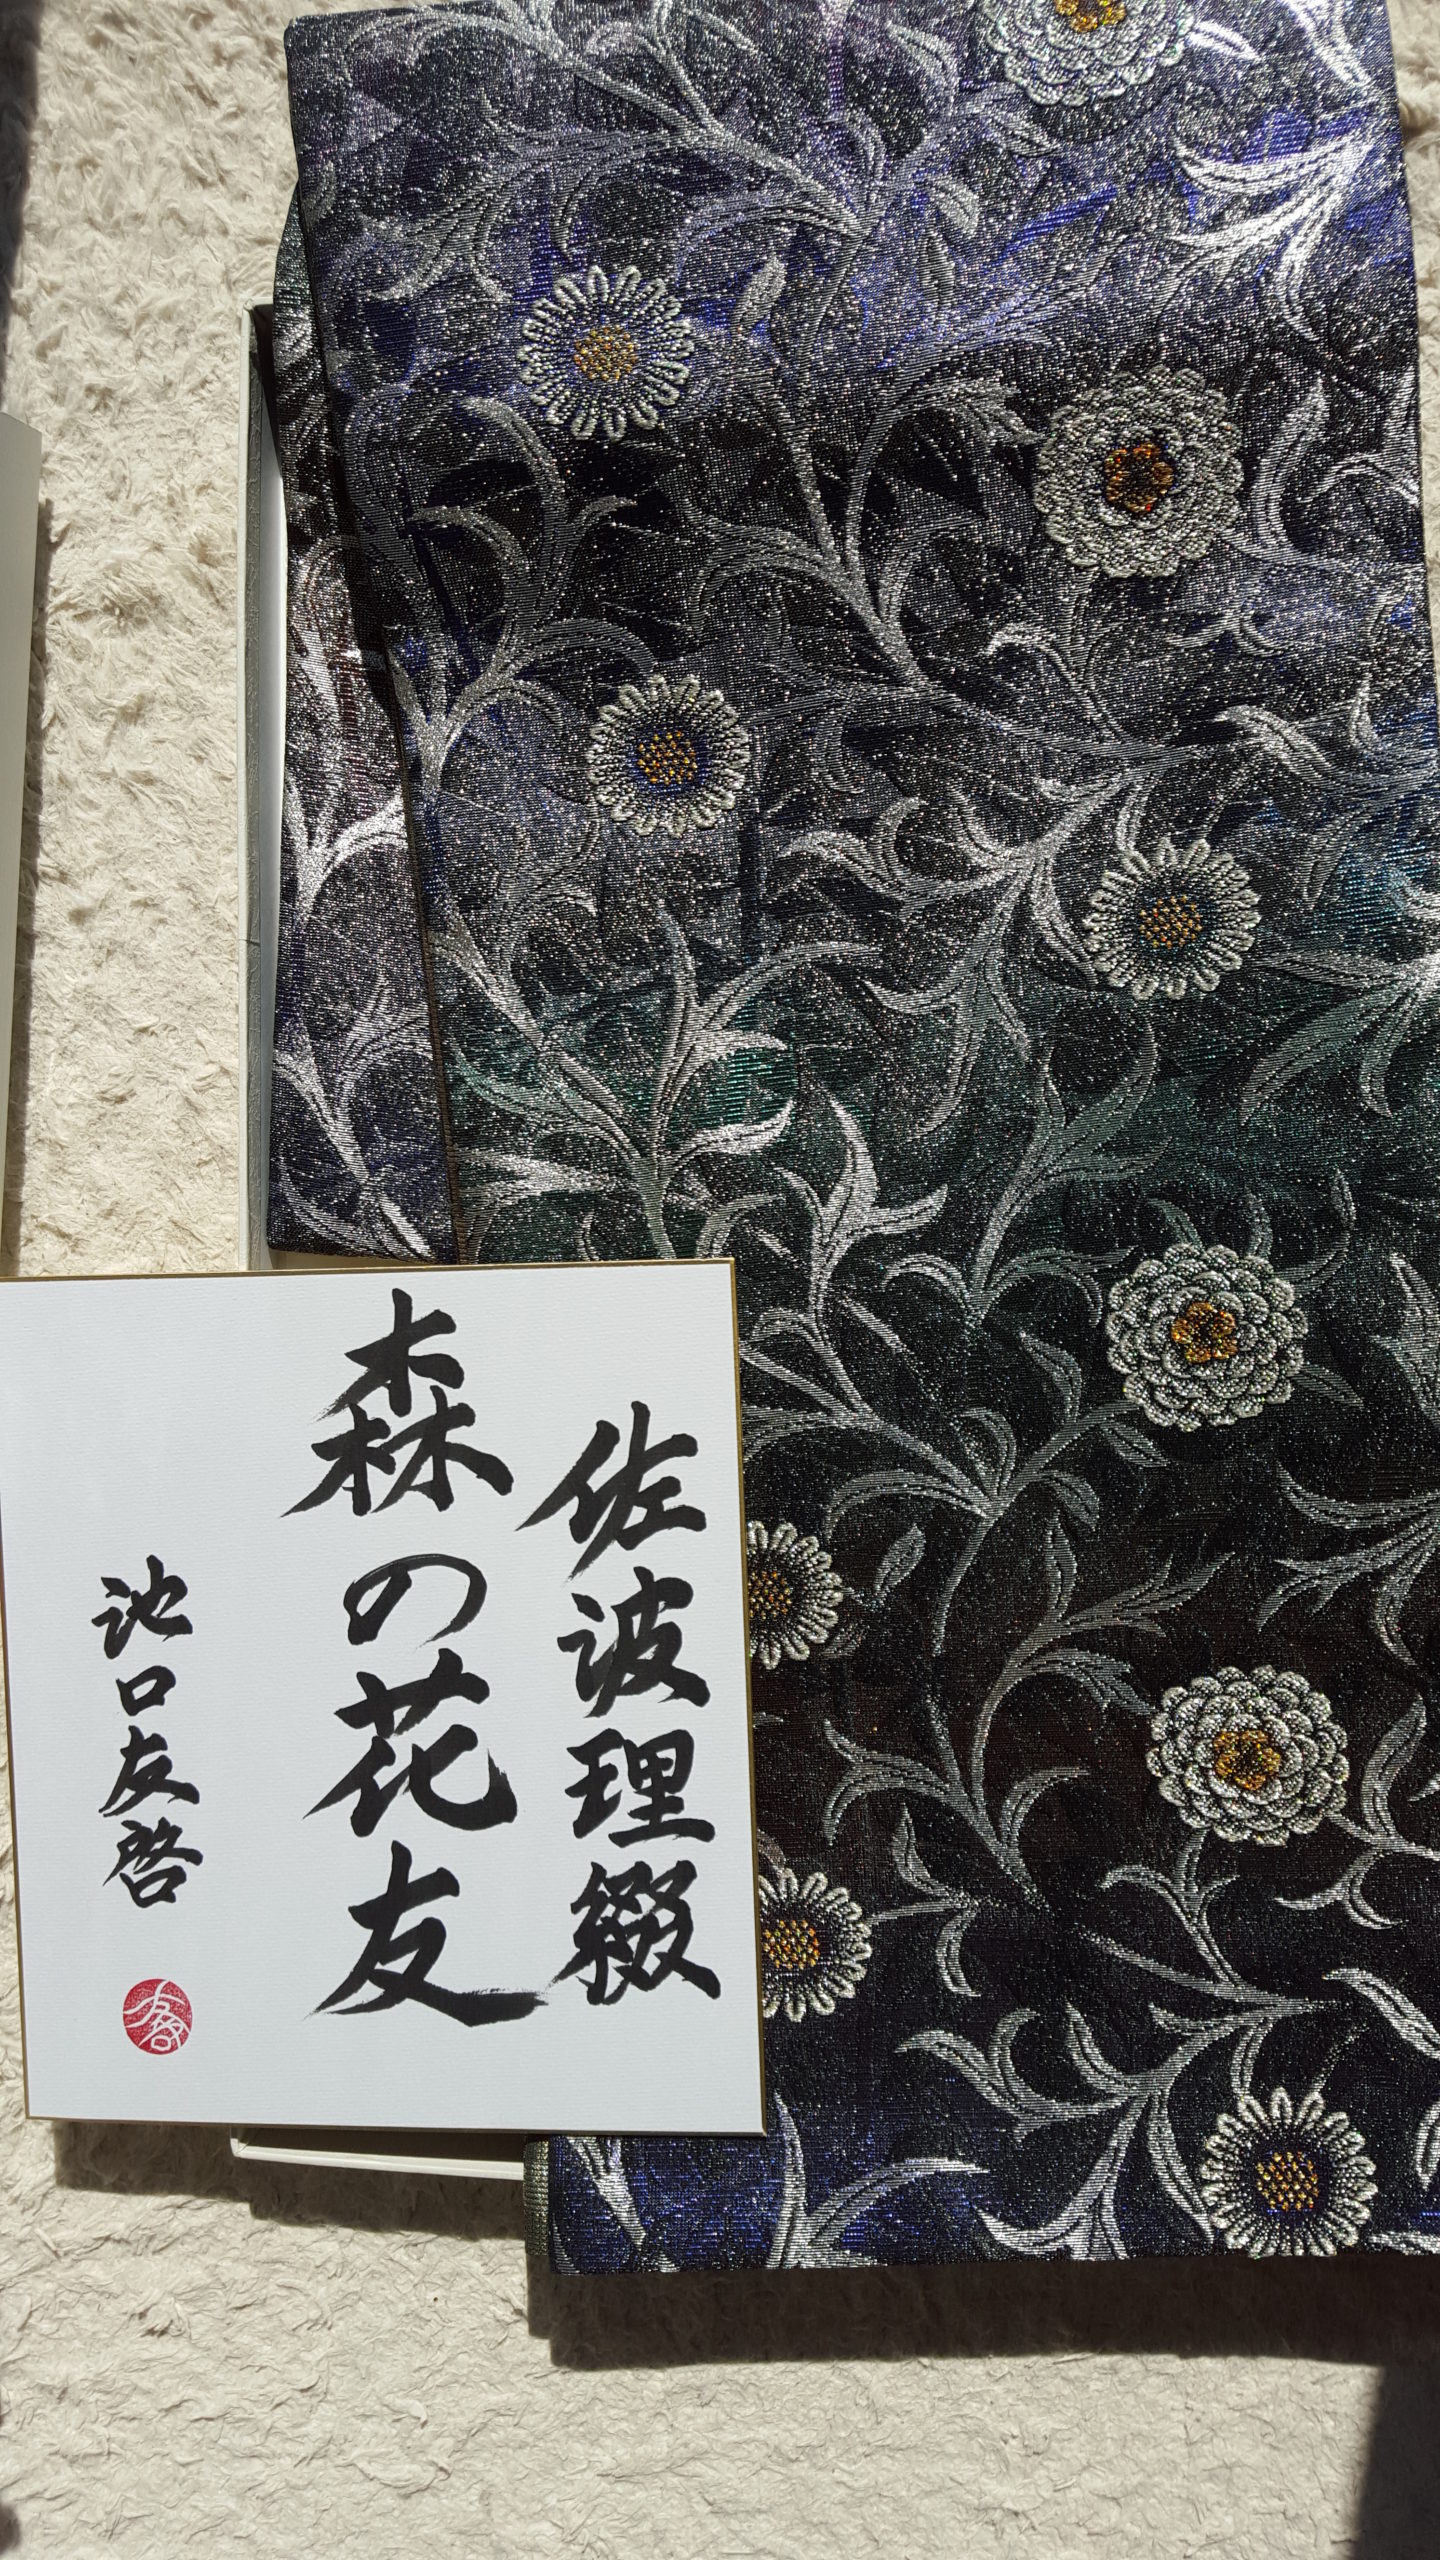 佐波理綴
森の花友
池口友啓
友啓